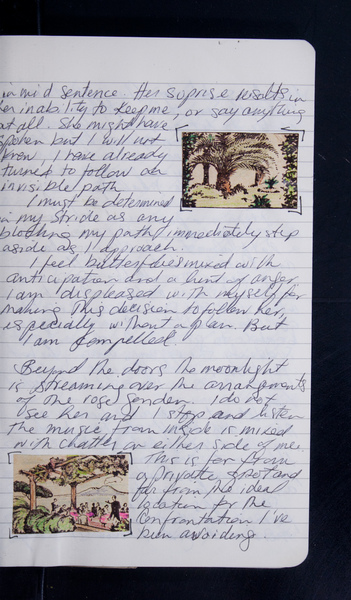 in mid sentence. Her suprise results in
her inability to keep me, or say anything
at all. She might have
spoken but I will not
know. I have already
turned to follow an
invisible path
I must be determined
in my stride as any
blocking my path immediately step
aside as I approach.
I feel butterflies mixed with
anticipation and a hint of anger
I am displeased with myself for
making this decision to follow her,
especially without a plan. But
I am compelled.
Beyond the doors the moonlight
is streaming over the arrangements
of the rose garden. I do not
see her and I stop and listen
The music from inside is mixed
with chatter on either side of me.
This is far from
a private spot and
far from the ideal
location for the
confrontation I've
been avoiding.